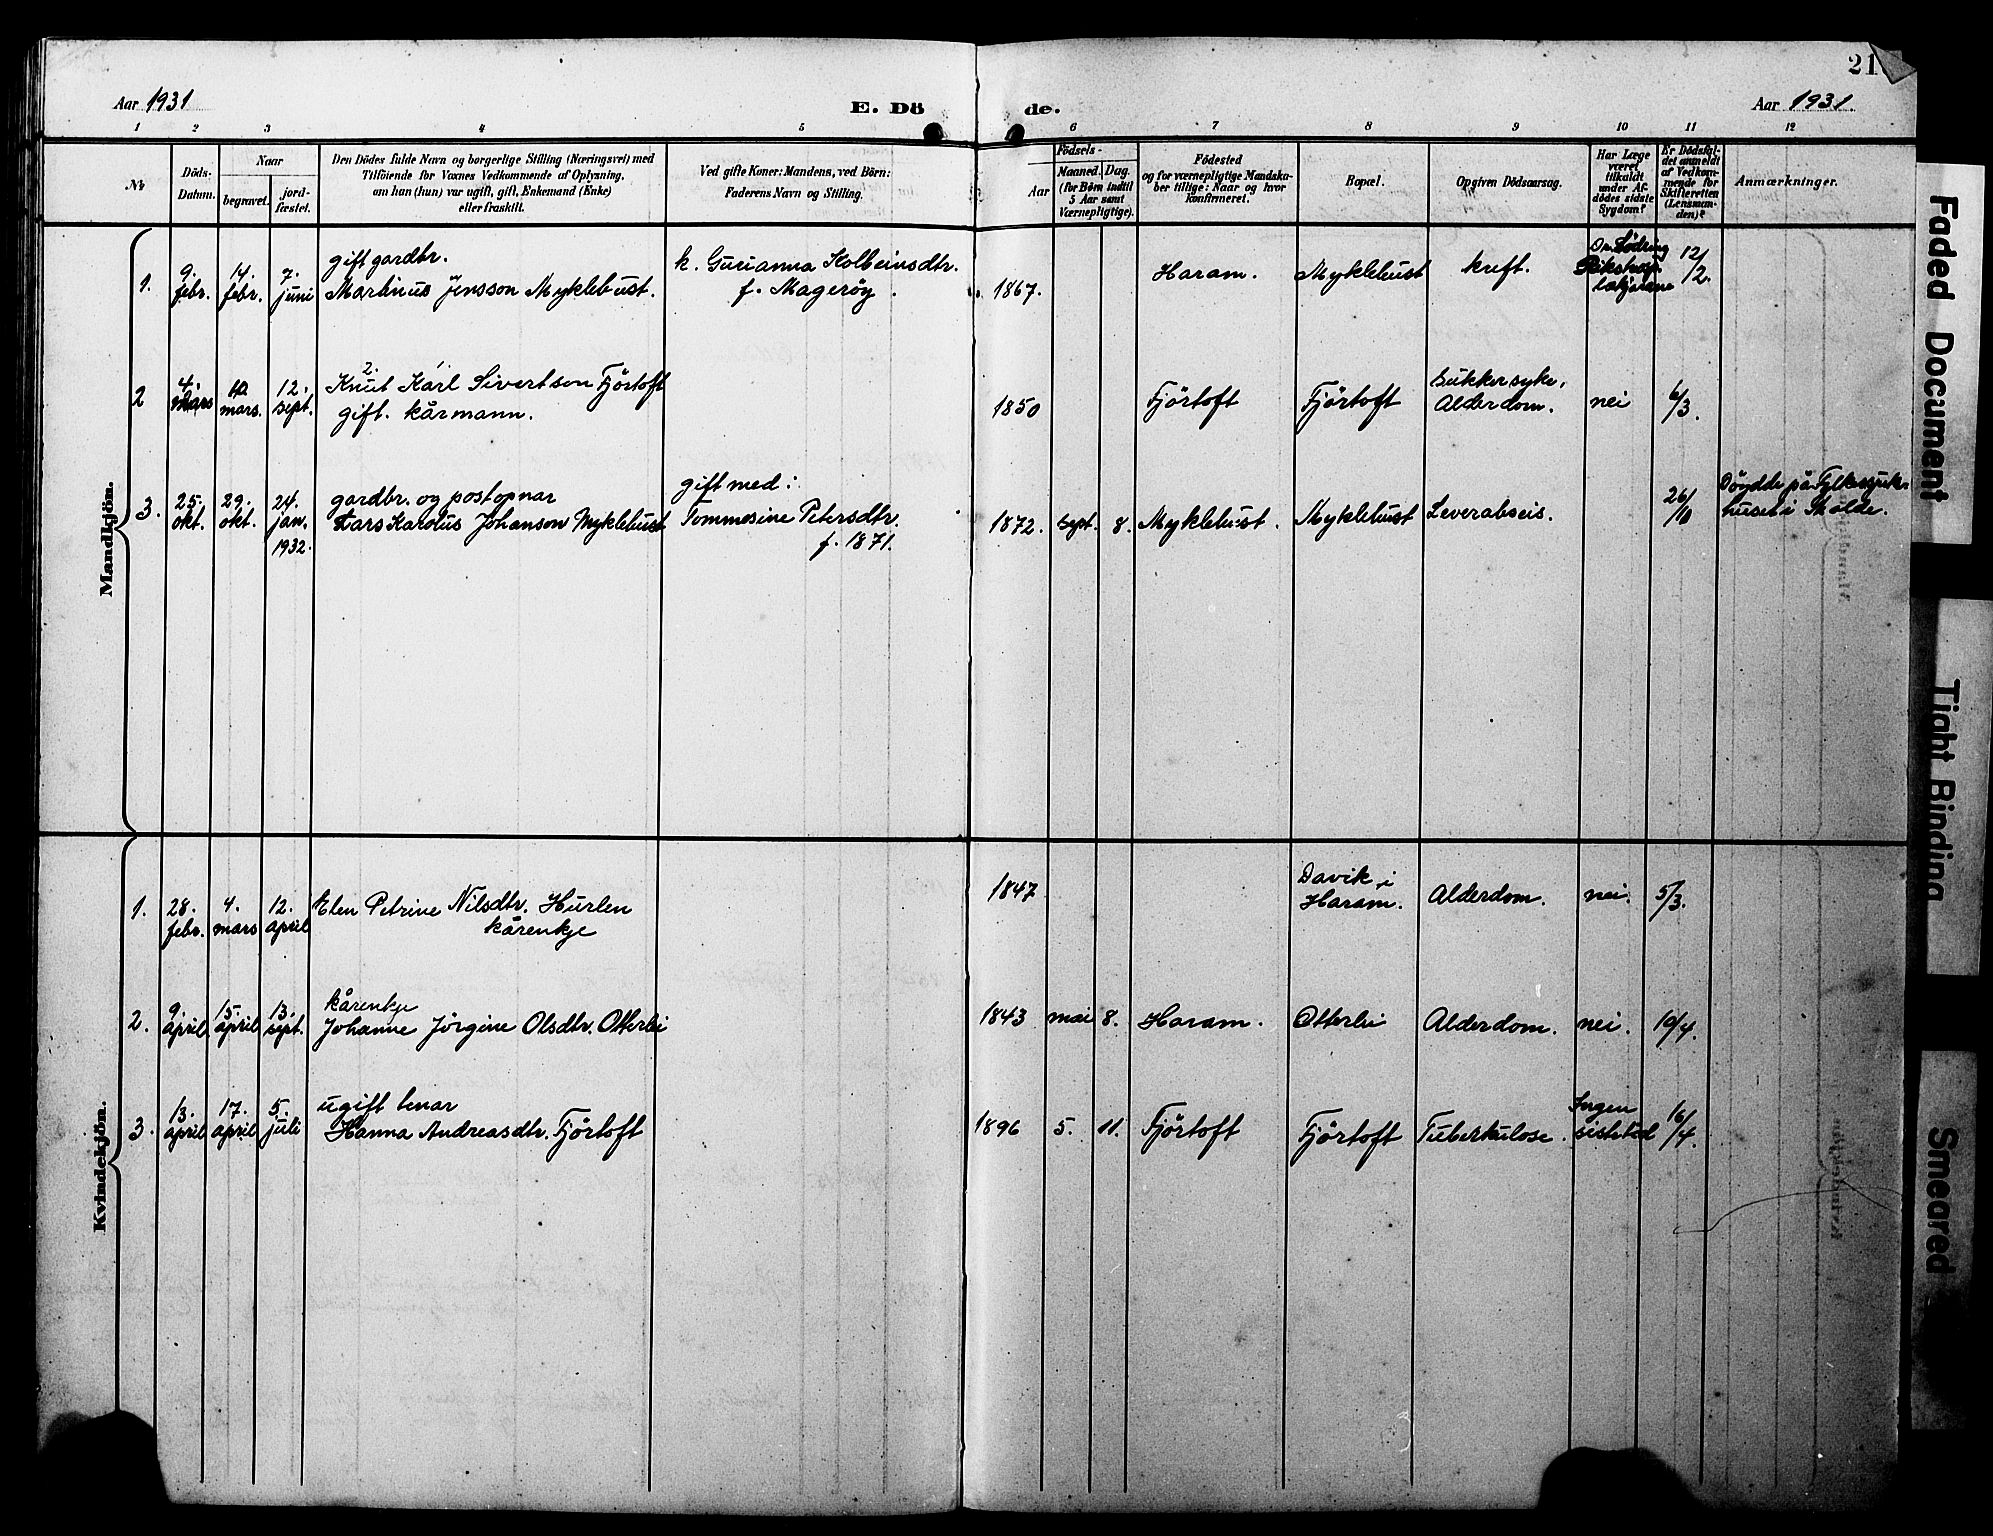 21
Aar 1931
E. Dö
de.
Aar 1931.
1 2 3 4 5 6 7 8 9 10 11 12
No
Döds-
Datum.
Naar
begravet.
jord-
fæstet.
Den Dödes fulde Navn og borgerlige Stilling (Næringsvei) med
Tilföiende for Voxnes Vedkommende af Oplysning,
om han (hun) var ugift, gift, Enkemand (Enke)
eller fraskilt.
Ved gifte Koner: Mandens, ved Börn:
Faderens Navn og Stilling.
Födsels-
Aar
Maaned.
Dag.
(for Börn indtil
5 Aar samt
Værnepligtige).
Födested
og for værnepligtige Mandska-
ber tillige: Naar og hvor
konfirmeret.
Bopæl.
Opgiven Dödsaarsag.
Har Læge
været
tilkaldt
under Af-
dödes sidste
Sygdom?
Er Dödsfal-
det anmeldt
af Vedkom-
mende for
Skifteretten
(Lensman-
den)?
Anmærkninger.
Mandkjön.
1.
9.
febr.
14.
febr.
7.
juni
gift gardbr.
Martinus Jensson Myklebust.
k. Gurianna Kolbeinsdtr.
f. Magerøy.
1867.
Haram.
Myklebust
kreft.
Dr. Lødring
12/2.
2
4.
mars
10
mars.
12.
sept.
2.
Knut Karl Sivertson Fjörtoft
gift. kårmann.
1850
Fjörtoft
Fjörtoft
Sukkersyke,
Alderdom.
nei
6/3.
3.
25.
okt.
29.
okt.
24.
jan.
1932.
gardbr. og postopnar
Lars Karolus Johanson Myklebust
gift med:
Tommesine Petersdtr.
f. 1871.
1872.
sept.
8.
Myklebust.
Myklebust
Leverabseis.
26/10
Døydde på Fylkessjuk-
huset i Molde.
Kvindekjön.
1.
28.
febr.
4.
mars
12.
april
Elen Petrine Nilsdtr. Hurlen
kårenkje
1847
Davik i
Haram.
Alderdom.
nei.
5/3.
2.
9.
april
15.
april
13.
sept.
kårenkje
Johanne Jørgine Olsdtr. Otterlei
1843
mai
8.
Haram.
Otterlei
Alderdom.
nei.
10/4.
3.
13.
april
17.
april
5.
juli
ugift tenar
Hanna Andreasdtr. Fjörtoft
1896
5.
11.
Fjörtoft
Fjörtoft
Tuberkulose.
Ingen
16/4.
Faded Document
Tight Binding
Smeared